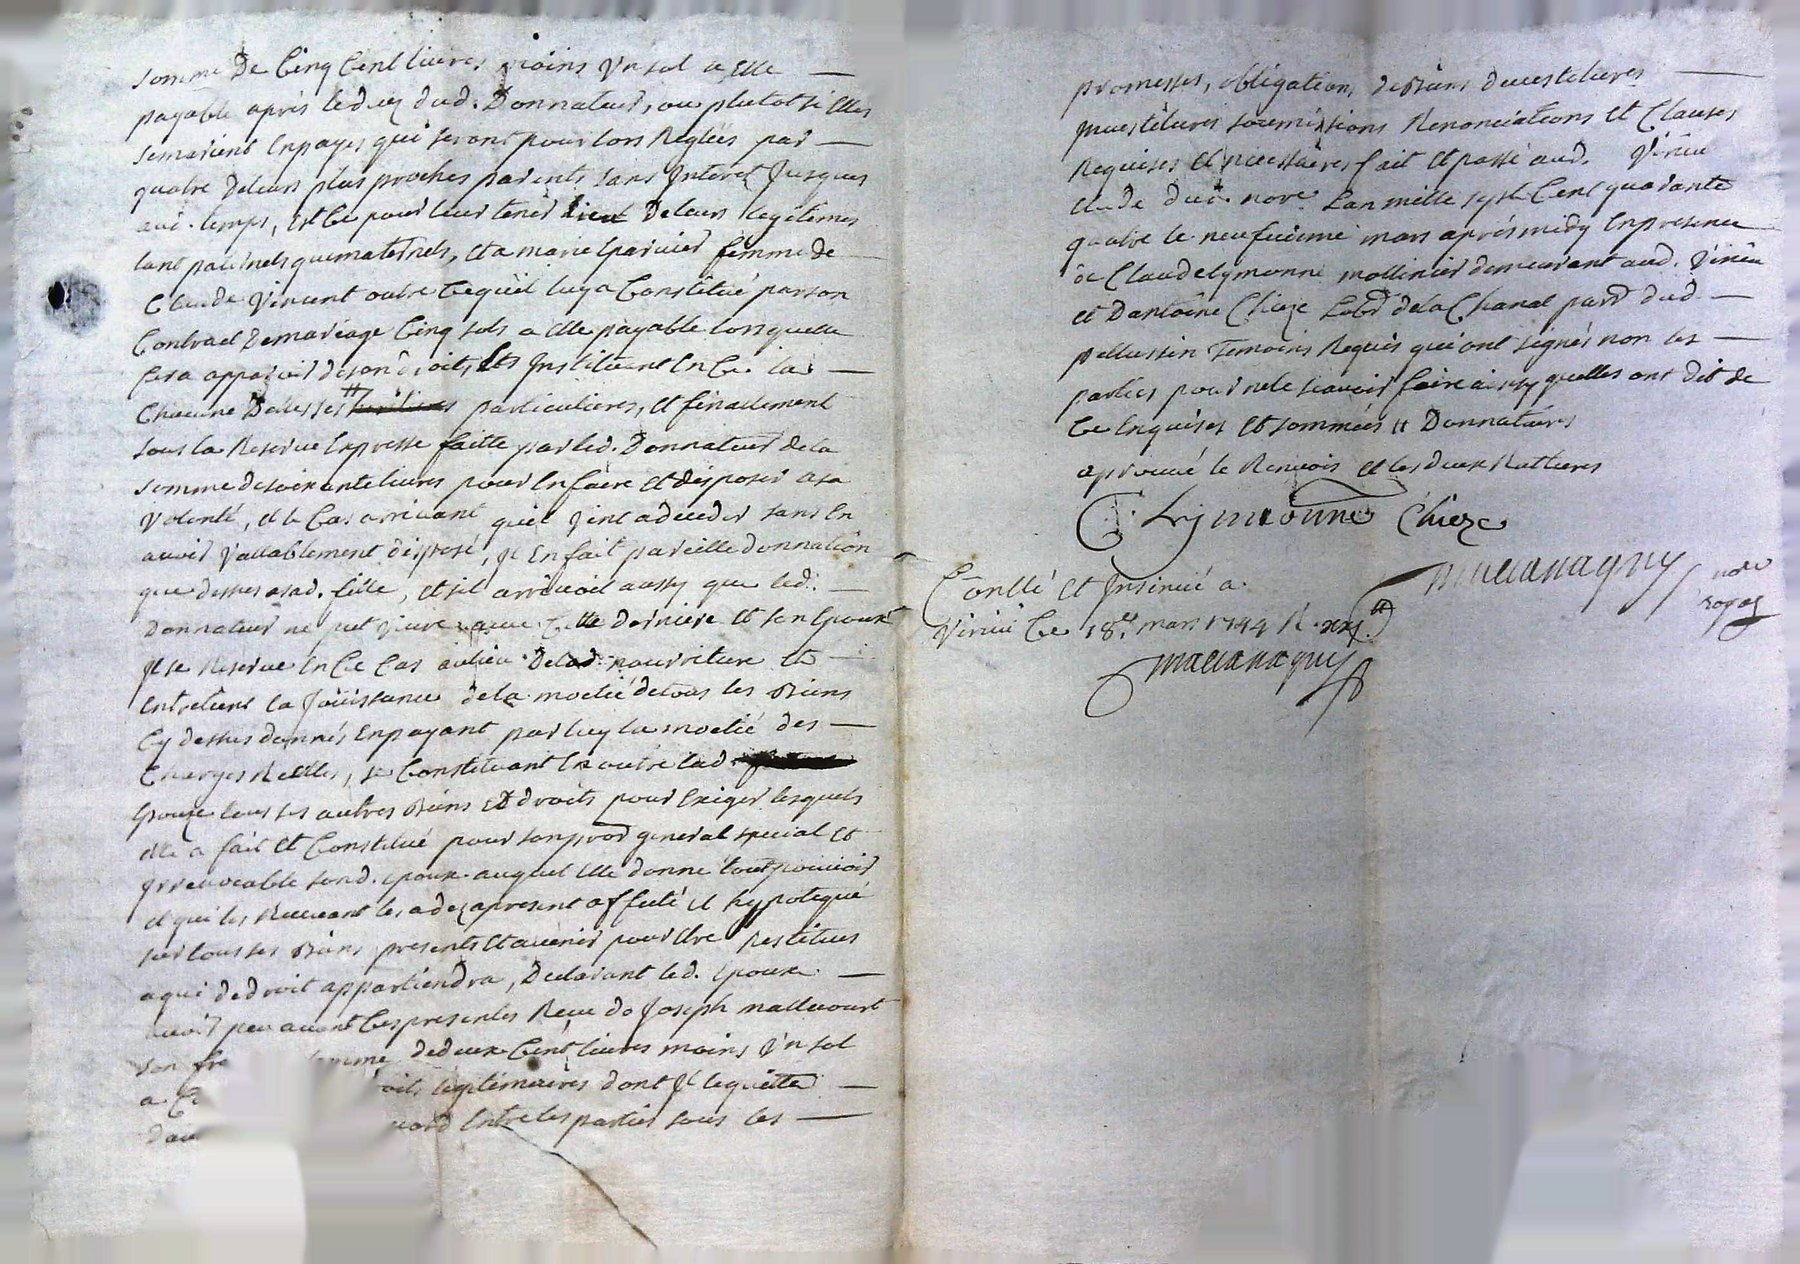 somme de Cinq Cent livres moins Un sol a Elle
payable après le deces dud. Donnateur, ou plutot si Elles
se marient En payes qui seront pour lors Reglées par
quatre de leurs plus proches parents sans Interet Jusques
aud. temps, et Ce pour leur tenir lieu de leurs legitimes
tant paternels que maternels, et a marie Eparvier femme de
Claude Vincent outre Ce qu'il luy a Constitué par son
Contract de mariage Cinq sols a Elle payable lors quelle
fera apparoir de son droit, les Instituant En Ce la
Chacune De ses particulieres, et finallement
sous la Reserve Expresse faitte par led. Donnateur de la
somme de soixante livres pour En faire et disposer a sa
Volonté, et le Cas arrivant quil Vint a deceder sans En
avoir Vallablement disposé, Il En fait pareille donnation
que dessus a sad. fille, et sil arrivoit aussy que led.
Donnateur ne put Vivre avec Cette derniere et son Epoux
Il se Reserve En Ce Cas au lieu de lad. nourriture et
Entretient la Jouissance de la moetié de tous les Biens
Cy dessus donnés En payant par luy la moetié des
Charges Reelles, se Constituant En outre lad.
Epouze tous ses autres Biens Et droits pour Exiger lesquels
elle a fait et Constitué pour son procr general special et
Irrevocable sond. Epoux auquel Elle donne tout pouvoir
et qui les Recevant les a dez apresent affecté et hypotequé
sur tous ses Biens presents et avenir pour Etre Restitues
a qui de droit appartiendra, Declarant led. Epoux
avoir peu avant Ces presentes Receu de Joseph mallecourt
son fre somme de deux Cent livres moins Un sol
a legitimaires dont Il le quitte
Entre les parties sous les
promesses, obligations de Biens devestitures
Investitures soumissions Renonciations Et Clauses
Requises Et necessaires fait Et passé aud. Virieu
Etude dud. nore Lan mille sept Cent quarante
quatre le neufvieme mars après midy En presence
de Claude Eymonne mollinier demeurant aud. Virieu
et Dantoine Chieze Labr de la Chanal parr dud.
pellussin Temoins Requis qui ont signés non les
parties pour ne le scavoir faire ainsy quelles ont dit de
Ce Enquises Et sommées # Donnataires
aprouvé le Renvois et les deux Ratures
C. Eymonne Chieze
Conllé Et Insinué a
Virieu Ce 18e mars 1744 R